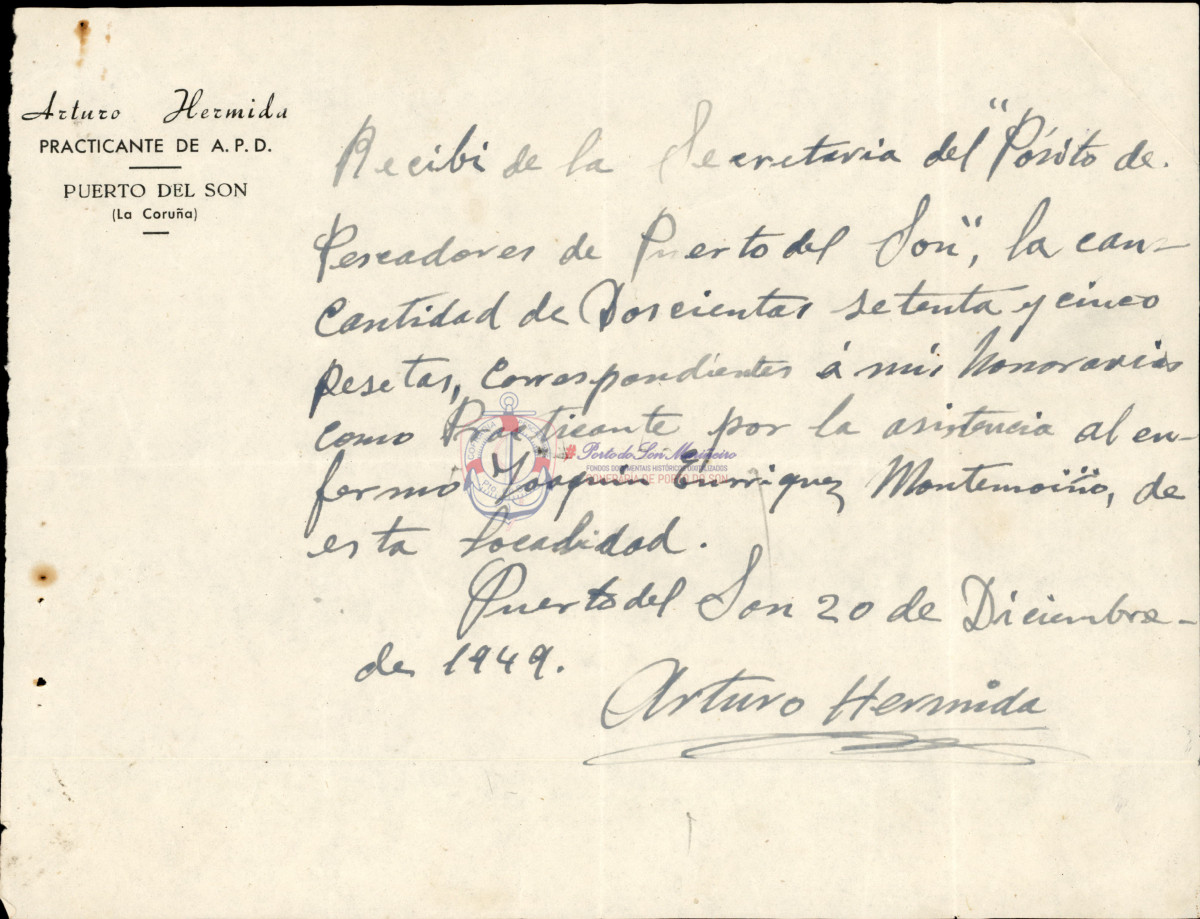 Arturo Hermida
PRACTICANTE DE A. P. D.
PUERTO DEL SON
(La Coruña)
Recibí de la Secretaria del "Pósito de
Pescadores de Puerto del Son", la can-
cantidad de Doscientas setenta y cinco
pesetas, correspondientes á mis honorarios
como Practicante por la asistencia al en-
fermo Joaquín Enrriquez Montemoiño, de
esta localidad.
#PortodoSonMariñeiro
FONDOS DOCUMENTAIS HISTÓRICOS DIXITALIZADOS
CONFRARÍA DE PORTO DO SON
Puerto del Son 20 de Diciembre-
de 1949.
Arturo Hermida